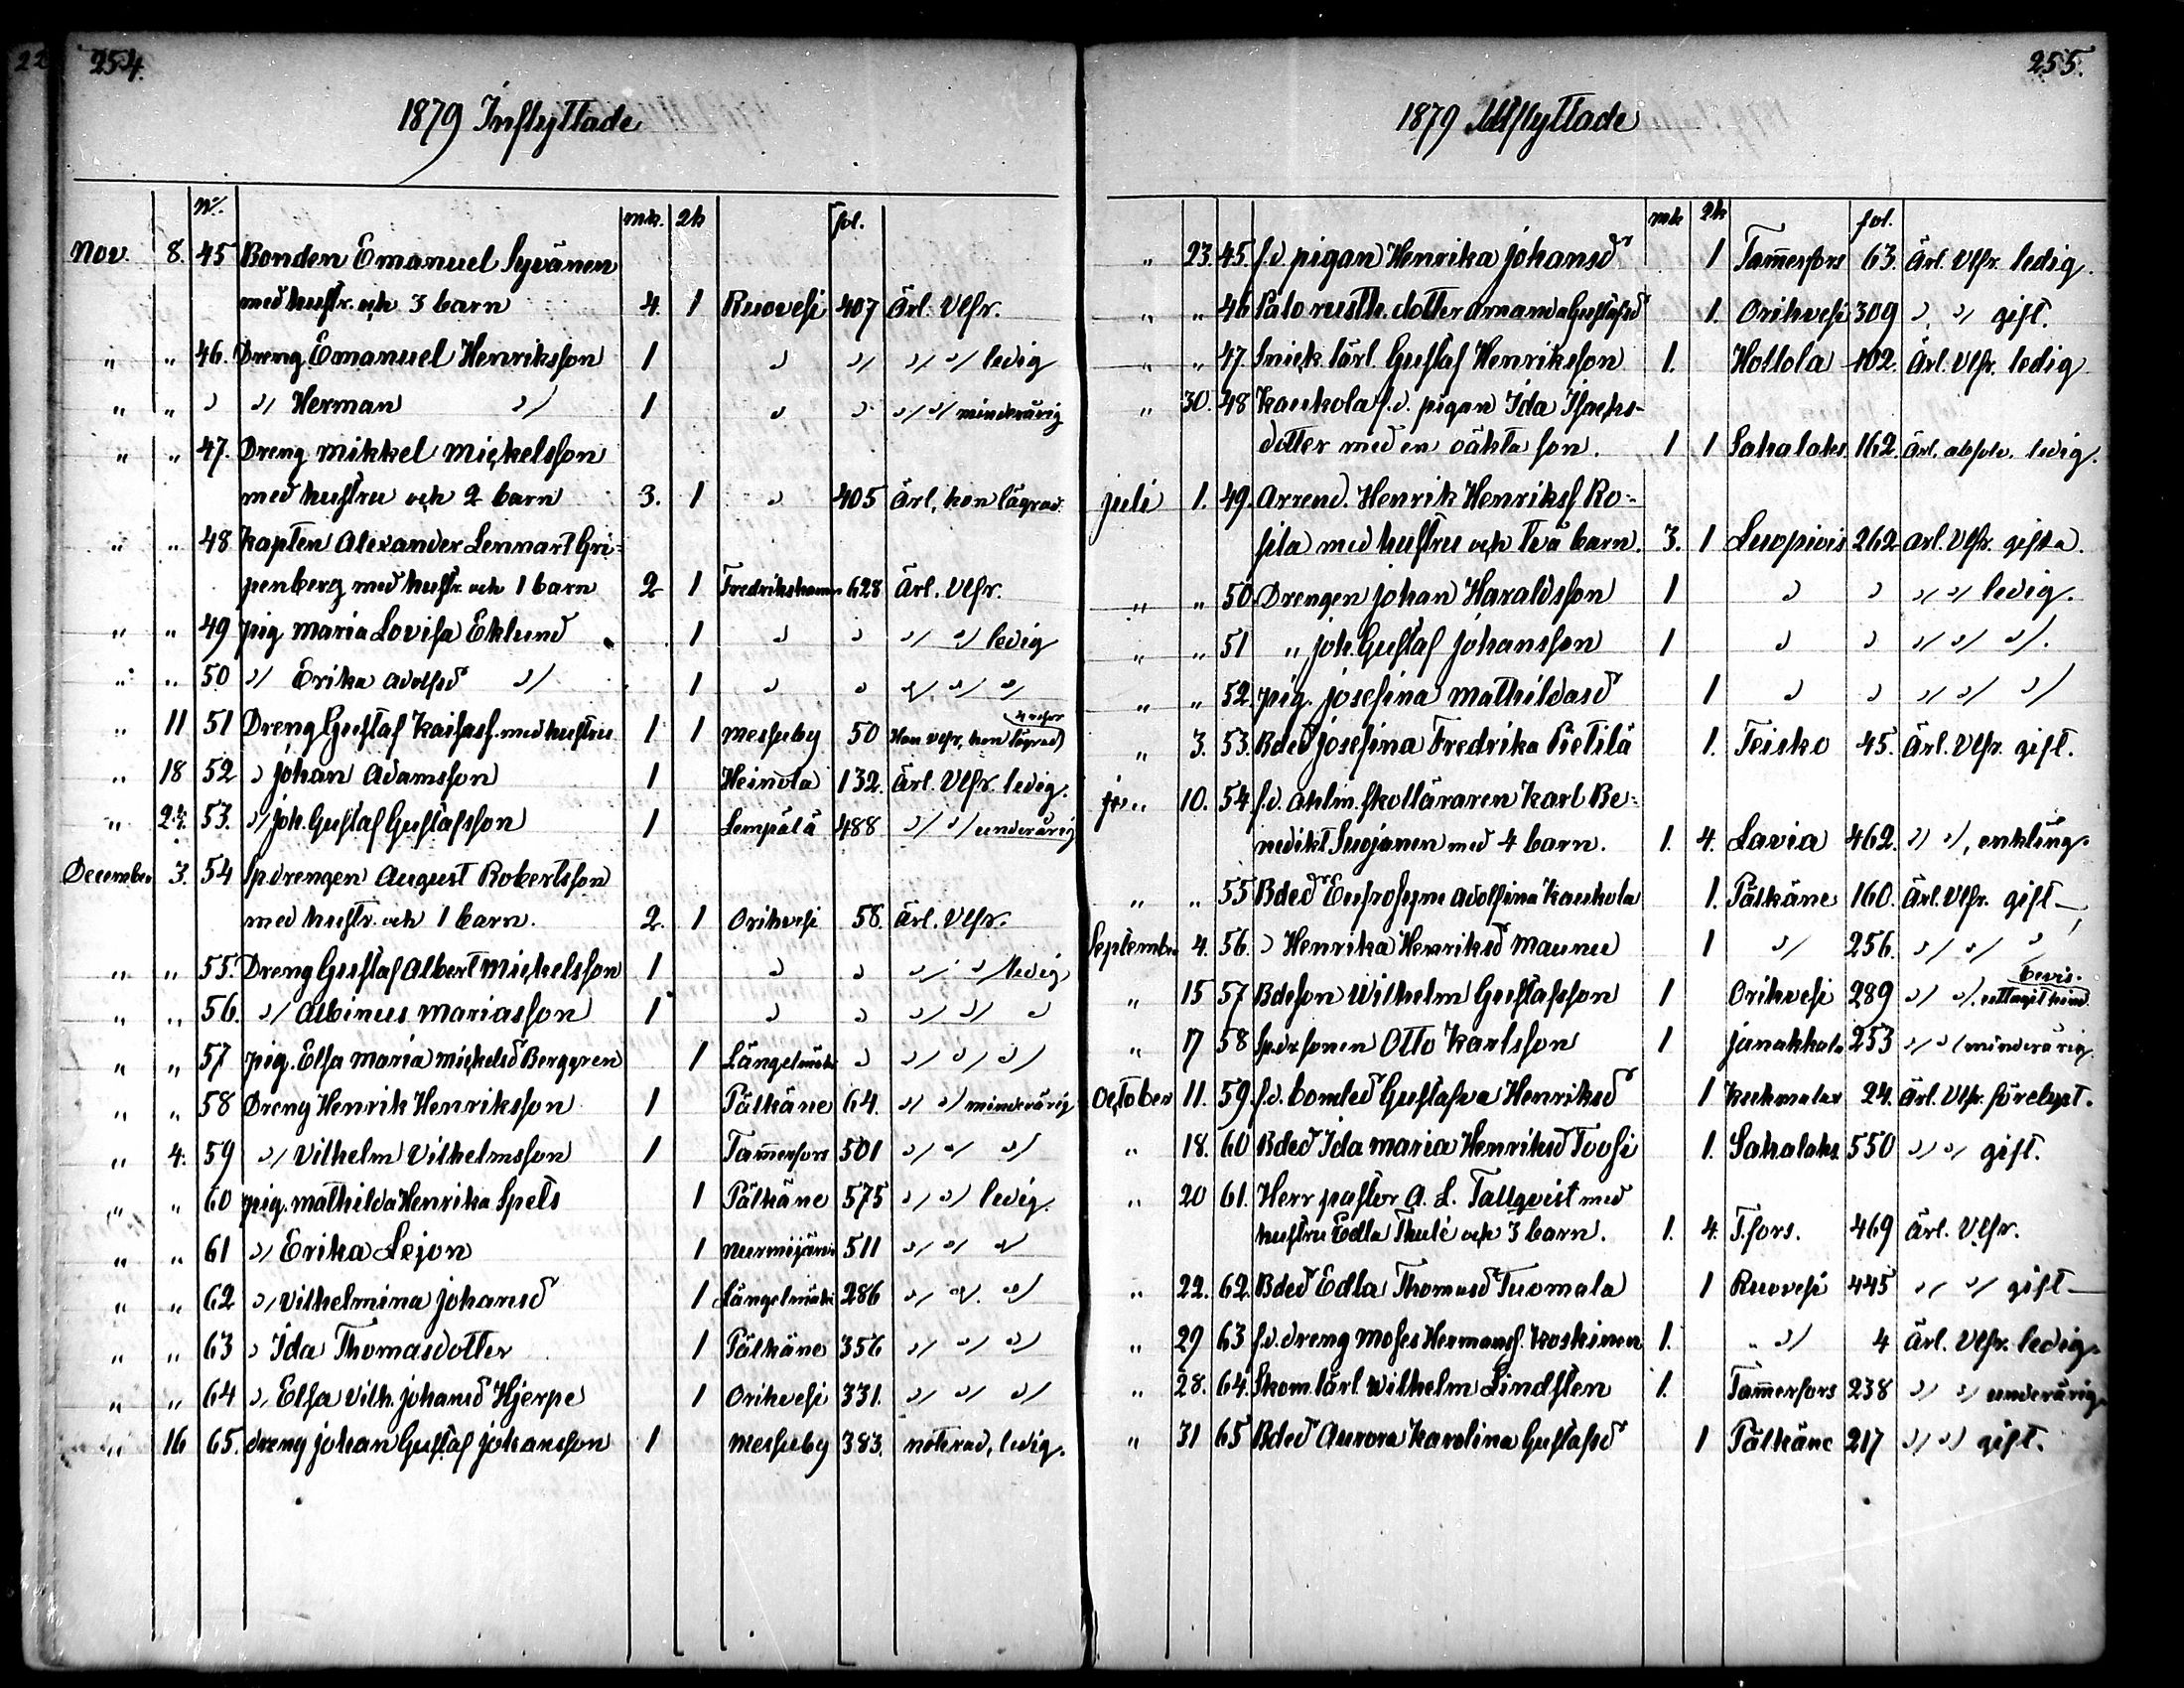 254.
1879 Inflyttade
No. mk. qk fol.
Nov. 8. 45 Bonden Emanuel Syvänen
med hustr. och 3 barn 4. 1 Ruovesi 407 Ärl. Vlfr.
" " 46. Dreng Emanuel Henriksson 1 " " " " ledig
" " " " Herman " 1 " " " " minderårig
" " 47. Dreng Mikkel Mickelsson
med hustru och 2 barn 3. 1 " 405 Ärl, hon lägrad.
" " 48 Kapten Alexander Lennart Gri-
penberg med hustr. och 1 barn 2 1 Fredrikshamn 628 Ärl. Vlfr.
" " 49 pig Maria Lovisa Eklund 1 " " " " ledig
" " 50 " Erika Adolfsd " 1 " " " " "
" 11 51 Dreng Gustaf Kaisasf. med hustru 1 1 Messuby 50 Han vlfr, hon lägrad
" 18 52 " Johan Adamsson 1 Heinola 132. Ärl. Vlfr. ledig.
" 24. 53. " Joh. Gustaf Gustafsson 1 Lempälä 488 " " underårig
December 3. 54 Sp.drengen August Robertsson
med hustr. och 1 barn. 2. 1 Orihvesi 58. Ärl. Vlfr.
" " 55. Dreng Gustaf Albert Mickelsson 1 " " " " ledig
" " 56. " Albinus Mariasson 1 " " " " "
" " 57 pig. Elsa Maria Mickelsd Berggren 1 Längelmäki " " " "
" " 58 Dreng Henrik Henriksson 1 Pälkäne 64. " " minderårig
" 4. 59 " Vilhelm Vilhelmsson 1 Tam̄erfors 501 " " "
" " 60 pig. Mathilda Henrika Spets 1 Pälkäne 575 " " ledig.
" " 61 " Erika Lejon 1 Nurmijärvi 511 " " "
" " 62 " Vilhelmina Johansd 1 Längelmäki 286 " " "
" " 63 " Ida Thomasdotter 1 Pälkäne 356 " " "
" " 64 " Elsa Vilh. Johansd Hjerpe 1 Orihvesi 331. " " "
" 16 65. dreng Johan Gustaf Johansson 1 Messuby 383. noterad, ledig.
255.
1879 Utflyttade
mk qk fol.
" 23. 45. f.d. pigan Henrika Johansd 1 Tam̄erfors 63. Ärl. Vlfr. ledig.
" " 46 Palo rusth. dotter Amanda Gustafsd 1. Orihvesi 309 " " gift.
" " 47. Snick. lärl. Gustaf Henriksson 1. Hollola 102. Ärl. Vlfr. ledig
" 30. 48 Kaukola f.d. pigan Ida Isacks-
dotter med en oäkta son. 1 1 Sahalaks 162. Ärl. absolv. ledig.
Juli 1. 49. Arrend. Henrik Henriksf Ro-
sila med hustru och två barn. 3. 1 Luopiois 262 Ärl. Vlfr. gifta.
" " 50. Drengen Johan Haraldsson 1 " " " " ledig.
" " 51 " Joh. Gustaf Johansson 1 " " " " ".
" " 52. pig. Josefina Mathildasd 1 " " " " "
" 3. 53. Bded Josefina Fredrika Pietilä 1. Teisko 45. Ärl. Vlfr. gift.
" 10. 54. f.d. ahlm. skolläraren Karl Be-
nedikt Suojanen med 4 barn. 1. 4. Lavia 462. " ", enkling.
" " 55 Bded Eufrosyne Adolfina Kaukola 1. Pälkäne 160. Ärl. Vlfr. gift
September 4. 56. " Henrika Henriksd Maunu 1 " 256. " " "
" 15 57 Bdeson Wilhelm Gustafsson 1 Orihvesi 289 " ", uttagit hind. bevis.
" 17 58 Sp.dr sonen Otto Karlsson 1 Janakkala 253 " " minderårig
October 11. 59. f.d. bonded Gustafva Henriksd 1 Kuhmalax 24. Ärl. Vlfr. förelyst.
" 18. 60 Bded Ida Maria Henriksd Toosi 1. Sahalaks. 550 " " gift.
" 20 61. Herr pastor A. L. Tallqvist med
hustru Edla Thulé och 3 barn. 1. 4. T.fors. 469 Ärl. Vlfr.
" 22. 62. Bded Edla Thomasd Tuomala 1 Ruovesi 445 " " gift
" 29 63 f.d. dreng Moses Hermansf. Koskinen 1. " " 4 Ärl. Vlfr. ledig.
" 28. 64. Skom. lärl. Wilhelm Lindsten 1. Tam̄erfors 238 " " underårig.
" 31 65 Bded Aurora Karolina Gustafsd 1 Pälkäne 217 " " gift.